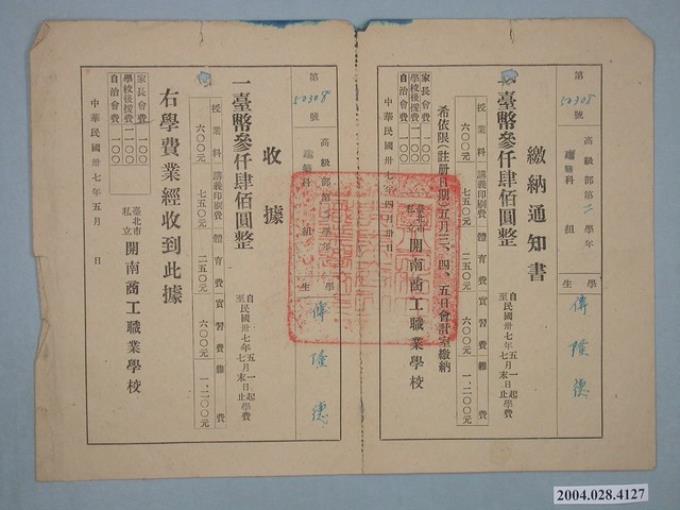 繳納通知書
第 50308 號
高級部第二學年
建築科 組
學生 傅隆德
一臺幣參仟肆佰圓整
自民國卅七年五月一日起
至民國卅七年七月末日止學費
授業料 六〇〇元
講義印刷費 七五〇元
體育費 二五〇元
實習費 六〇〇元
雜費 一.二〇〇元
家長會費 一〇〇
學校後援費 一〇〇
自治會費 一〇〇
希依限(註册日期)五月三、四、五日會計室繳納
中華民國卅七年四月卅日
臺北市
私立 開南商工職業學校
收據
第 50308 號
高級部第二學年
建築科 組
學生 傅隆德
一臺幣參仟肆佰圓整
自民國卅七年五月一日起
至民國卅七年七月末日止學費
授業料 六〇〇元
講義印刷費 七五〇元
體育費 二五〇元
實習費 六〇〇元
雜費 一.二〇〇元
家長會費 一〇〇
學校後援費 一〇〇
自治會費 一〇〇
右學費業經收到此據
中華民國卅七年五月 日
臺北市
私立 開南商工職業學校
2004.028.4127